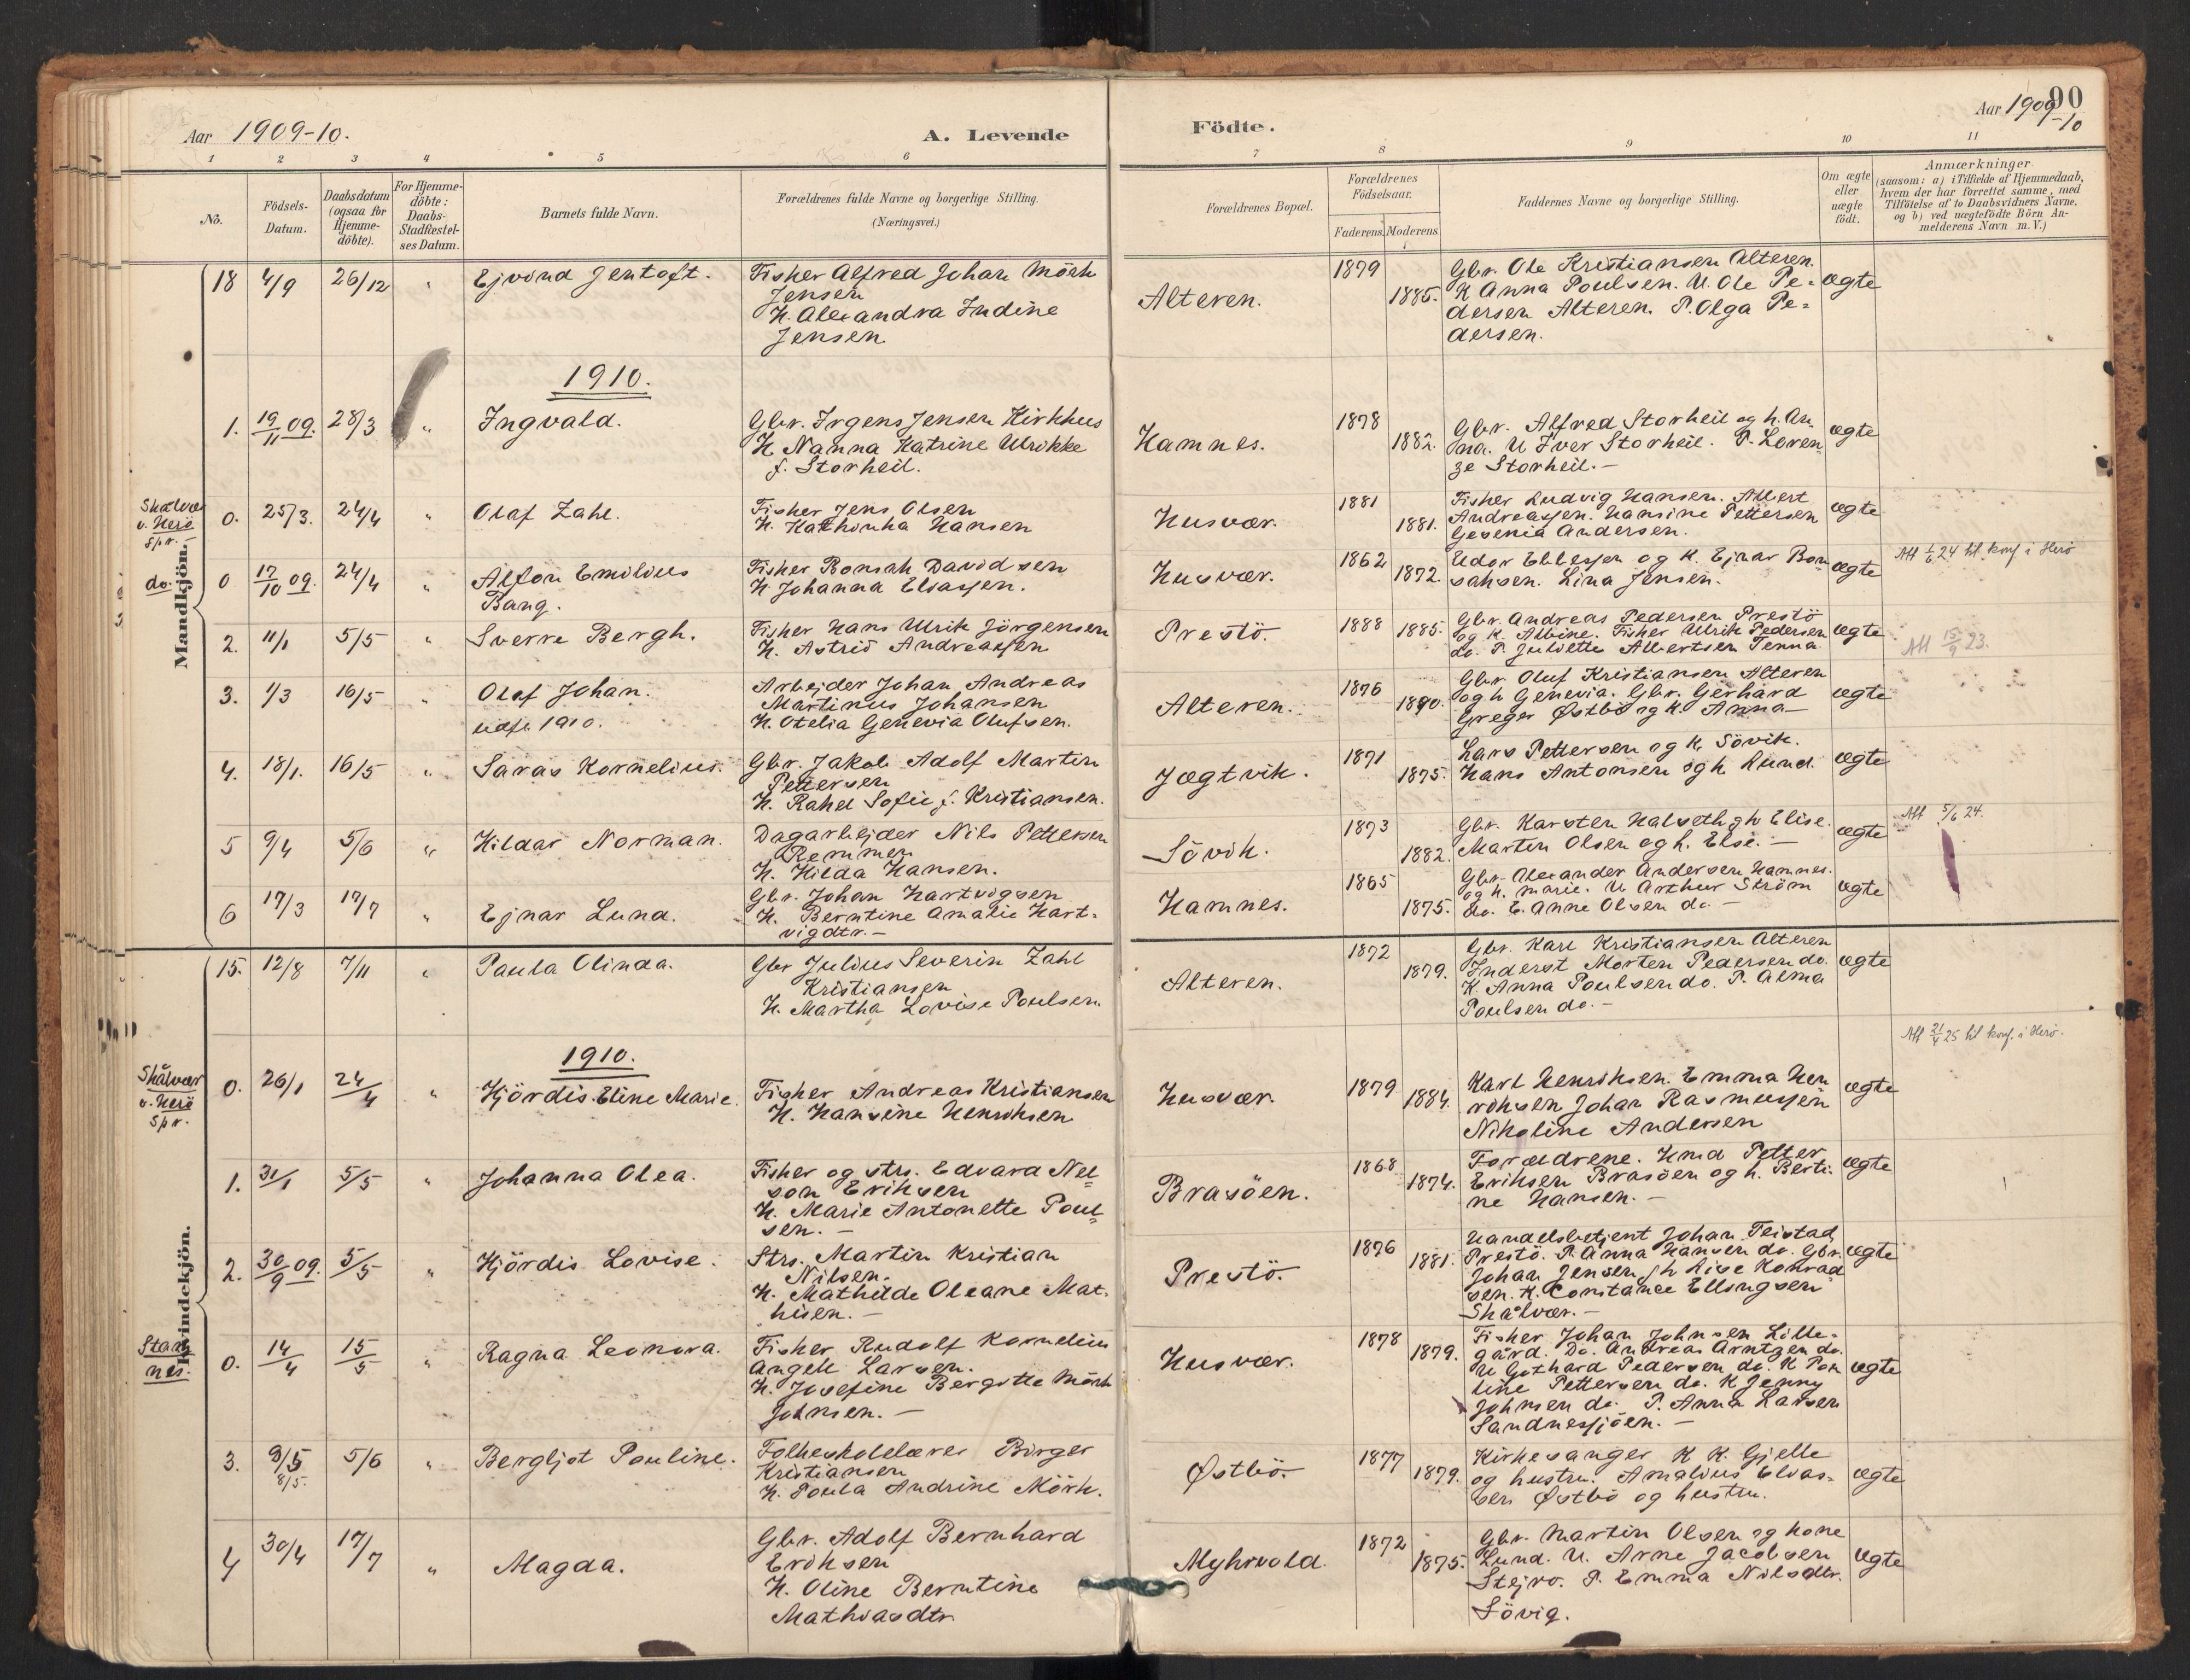 Aar 1909-10.
A. Levende
Födte.
Aar 1909-10
90
1 2 3 4 5 6 7 8 9 10 11
No.
Födsels-Datum.
Daabsdatum (ogsaa for Hjemme-döbte).
For Hjemme-döbte: Daabs-Stadfæstel-ses Datum.
Barnets fulde Navn.
Forældrenes fulde Navne og borgerlige Stilling.
(Næringsvei.)
Forældrenes Bopæl.
Forældrenes Födselsaar.
Faderens. Moderens.
Faddernes Navne og borgerlige Stilling.
Om ægte eller uægte födt.
Anmærkninger
(saasom: a) i Tilfælde af Hjemmedaab,
hvem der har forrettet samme, med
Tilföielse af to Daabsvidners Navne,
og b) ved uægtefödte Börn An-
melderens Navn m. V.)
Mandkjön.
18 4/9 26/12 " Ejvind Jentoft.
Fisker Alfred Johan Mörk
Jensen
H. Alexandra Indine
Jensen
Alteren.
1879
1885.
Gbr. Ole Kristiansen Alteren.
K Anna Poulsen. U. Ole Pe-
dersen Alteren. P. Olga Pe-
dersen.
ægte
1910.
1. 19/11 09. 28/3 " Ingvald.
Gbr. Irgens Jensen Kirkhus
H Nanna Katrine Ulrikke
f. Storheil.
Hamnes.
1878
1882.
Gbr. Alfred Storheil og h. An-
na. U Iver Storheil. P. Loren-
ze Storheil.-
ægte
Skålvær
v. Herö
Spr.-
0. 25/3. 24/4 " Olaf Zahl.
Fisker Jens Olsen
H. Kathinka Hansen
Husvær.
1881
1881.
Fisker Ludvig Hansen. Albert
Andreassen. Hansine Pettersen
Gesenia Andersen.
ægte
do.
0 17/10 09. 24/4 " Alfon Emilius
Bang.
Fisker Bonsak Davidsen
H Johanna Eliassen.
Husvær.
1862
1872.
Edor Ebbesen og K. Ejnar Bon-
saksen. Lina Jensen.
ægte
Att 1/6 24 til konf. i Herö
2. 11/1 5/5 " Sverre Bergh.
Fisker Hans Ulrik Jörgensen
H. Astrid Andreassen
Prestö.
1888 1885.
Gbr. Andreas Pedersen Prestö
og K. Albine. Fisker Ulrik Pedersen
do. P. Juliette Albertsen Tenna
ægte
Att 15/9 23.
3. 1/3 16/5 " Olaf Johan.
udfl. 1910.
Arbejder Johan Andreas
Martinus Johansen
H. Otelia Genevia Olufsen.
Alteren.
1876
1890.
Gbr Oluf Kristiansen Alteren
og h Genevia. Gbr. Gerhard
Greger Østbö og K. Anna-
ægte
4. 18/1. 16/5 " Saras Kornelius.
Gbr. Jakob Adolf Martin
Pettersen
H. Rahel Sofie f. Kristiansen.
Jægtvik.
1871
1875.
Lars Pettersen og K, Sövik.
Hans Antonsen og h. Lund.
ægte
5 9/4 5/6 " Hildar Norman.
Dagarbejder Nils Pettersen
Remmen
H. Hilda Hansen.
Sövik.
1873
1882.
Gbr. Karsten Halseth gh Elise.
Martin Olsen og h. Else.-
ægte
Att 5/6 24.
6 17/3 17/7 " Ejnar Lund.
Gbr. Johan Hartvigsen
H. Berntine Amalie Hart-
vigdtr.-
Hamnes.
1865
1875.
Gbr. Alexander Andersen Hamnes.
og h. Marie. U Arthur Ström
do. E. Anne Olsen do.-
ægte
Kvindekjön.
15. 12/8 7/11 " Paula Olinda.
Gbr Julius Severin Zahl
Kristiansen
H. Martha Lovise Poulsen.
Alteren.
1872
1879.
Gbr. Karl Kristiansen Alteren
Inderst Morten Pedersen do.
K. Anna Poulsen do. P. Alma
Poulsen do.-
ægte
1910.
Skålvær
v. Herö
Spr.
0. 26/1 24/4 " Hjördis Eline Marie.
Fisker Andreas Kristiansen
H. Hansine Henriksen
Husvær.
1879 1884.
Karl Henriksen. Emma Hen-
riksen Johan Rasmussen
Nikoline Andersen
ægte
Att 21/4 25 til konf. i Herö.
1. 31/1 5/5 " Johanna Olea.
Fisker og strs. Edvard Nel-
son Eriksen
H. Marie Antonette Poul-
sen.-
Brasöen.
1868
1874.
Forældrene. Hmd Petter
Eriksen Brasöen og h. Berti-
ne Hansen.-
ægte
2. 30/9 09. 5/5 " Hjördis Lovise.
Strs. Martin Kristian
Nilsen.
H. Mathilde Oleane Mat-
hisen.-
Prestö.
1876
1881.
Handelsbetjent Johan Teistad
Prestö. P. Anna Hansen do. Gbr.
Johan Jensen gh Lise Konrad-
sen. K. Constance Ellingsen
Skålvær.-
ægte
Stam-
nes.
0. 14/4 15/5 " Ragna Leonora.
Fisker Rudolf Kornelius
Angell Larsen.
H. Josefine Bergitte Mörk
Johnsen.-
Husvær.
1878
1879.
Fisker Johan Johnsen Lille-
gård. Do. Andreas Arntzen do.
U Gothard Pedersen do. K Pau-
line Pettersen do. K Jenny
Johnsen do. P. Anna Larsen
Sandnessjöen.-
ægte
3. 9/5 5/6 " Bergljot Pouline.
8/5.
Folkeskolelærer Birger
Kristiansen
H. Poula Andrine Mörk.
Østbö.
1877
1879.
Kirkesanger K K. Gjelle
og hustru. Amalius Elias-
sen Østbö og hustru.
ægte
4 30/4 17/7 " Magda.
Gbr. Adolf Bernhard
Eriksen
H. Oline Berntine
Mathiasdtr
Myhrvold
1872
1875.
Gbr. Martin Olsen og kone
Lund. U. Arne Jacobsen
Stejro. P. Emma Nilsdtr.
Sövig.
ægte